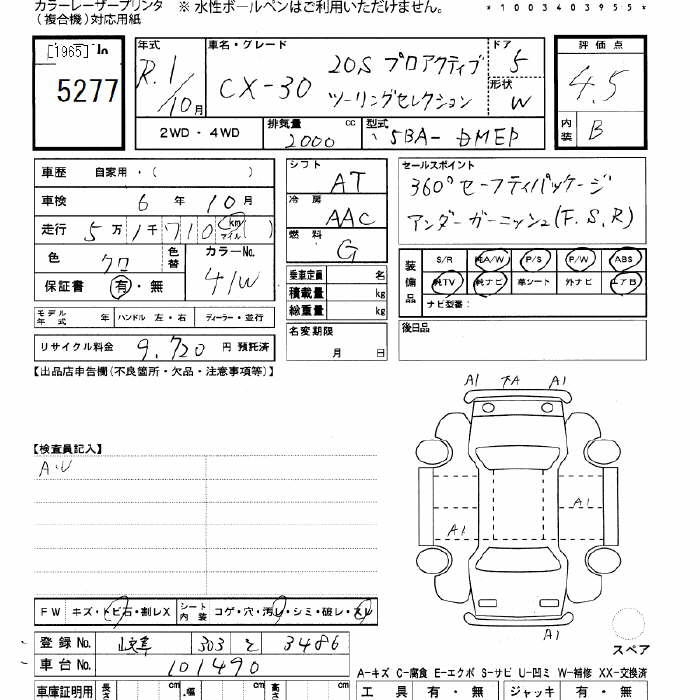 カラーレーザープリンタ ※ 水性ボールペンはご利用いただけません。 *1003403955*
(複合機)対応用紙
[1965] In
5277
年式 R.1/10月
車名・グレード CX-30 20S プロアクティブ
ツーリングセレクション
ドア 5
形状 W
評価点 4.5
内装 B
2WD・4WD 排気量 2000 cc 型式 5BA-DMEP
車歴 自家用・( )
車検 6 年 10 月
走行 5万 1千 7 1 0 km マイル )
色 クロ 色替 カラーNo. 41W
保証書 有・無
モデル年式 年 ハンドル 左・右 ディーラー・並行
リサイクル料金 9,720 円 預託済
シフト AT
冷房 AAC
燃料 G
乗車定員 名
積載量 kg
総重量 kg
名変期限
月 日
セールスポイント
360°セーフティパッケージ
アンダーガーニッシュ(F.S.R)
装備品 S/R 純A/W P/S P/W ABS
純TV 純ナビ 革シート 外ナビ エアB
ナビ型番:
後日品
【出品店申告欄(不良箇所・欠品・注意事項等)】
【検査員記入】
A.U
A1 A1
A1
A1
A1
スペア
FW キズ・トビ石・割レX シート内装 コゲ・穴・汚レ・シミ・破レ・スレ
登録No. 303 3486
車台No. 101490
A-キズ C-腐食 E-エクボ S-サビ U-凹ミ W-補修 XX-交換済
車庫証明用 長さ cm 幅 cm 高さ cm
工具 有・無 ジャッキ 有・無